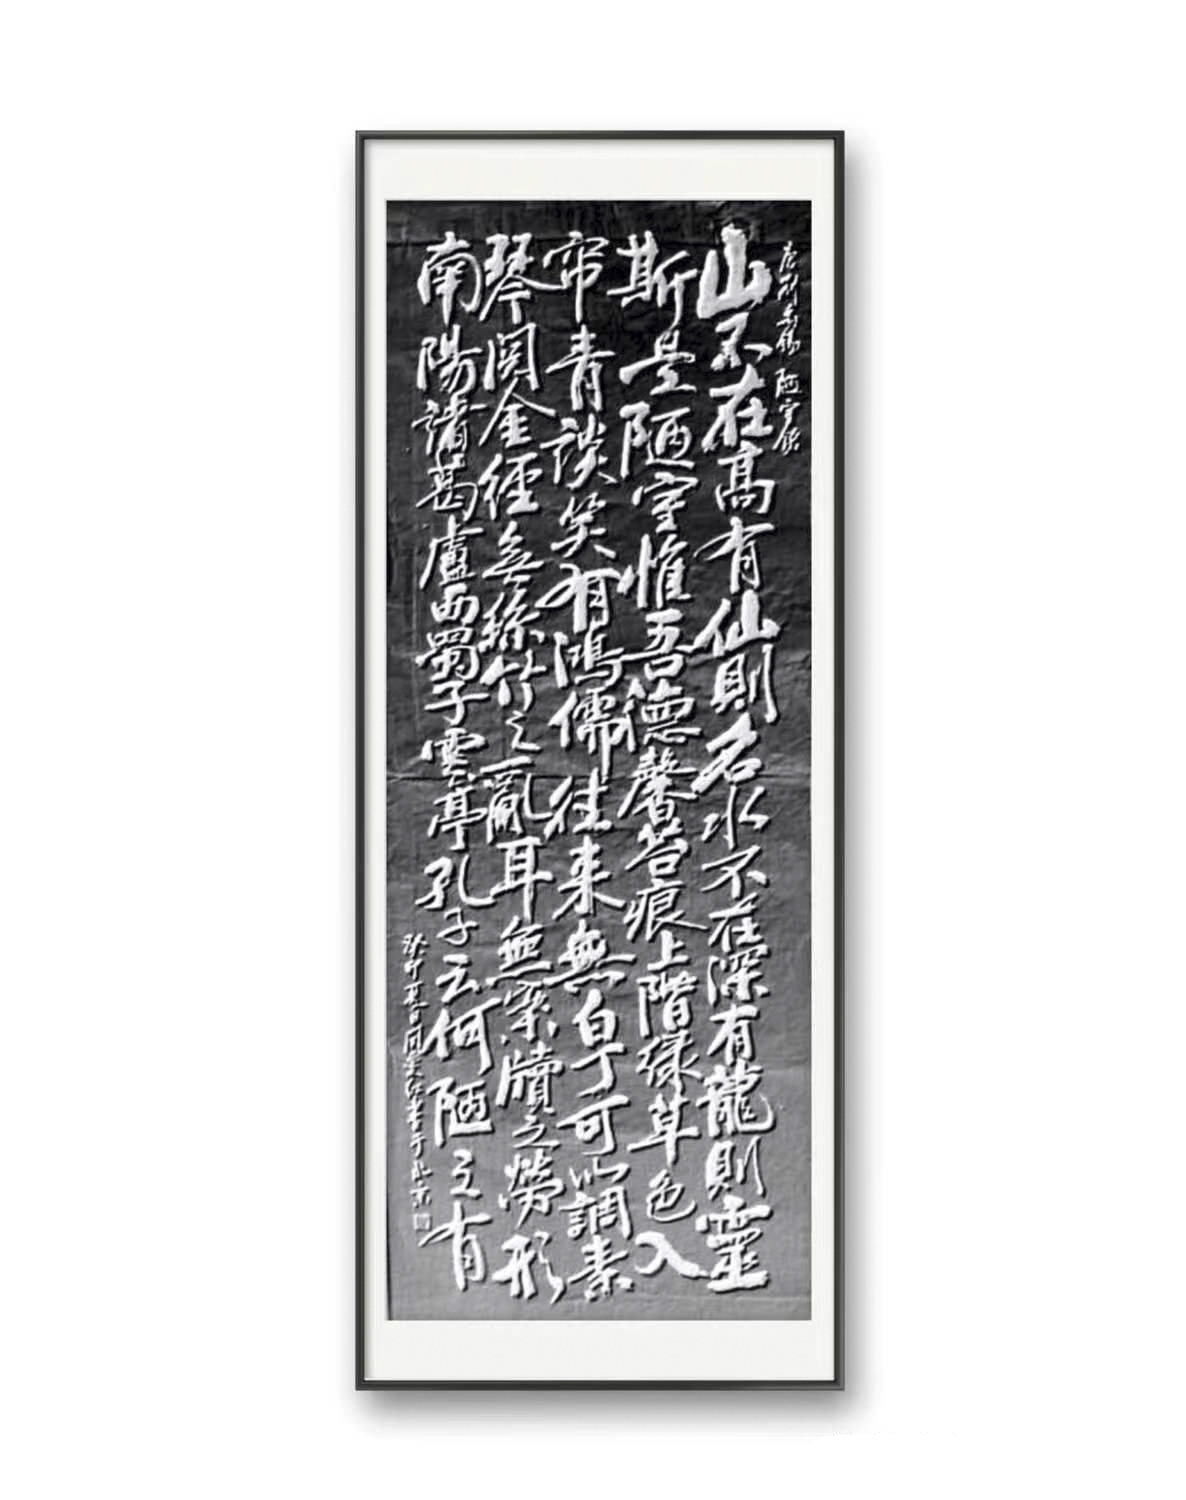 唐劉禹錫 陋室銘
山不在高有仙則名水不在深有龍則靈
斯是陋室惟吾德馨苔痕上階緑草色入
帘青談笑有鴻儒往来無白丁可以調素
琴閲金經無絲竹之亂耳無案牘之勞形
南陽諸葛廬西蜀子雲亭孔子云何陋之有
癸卯夏日書于北京